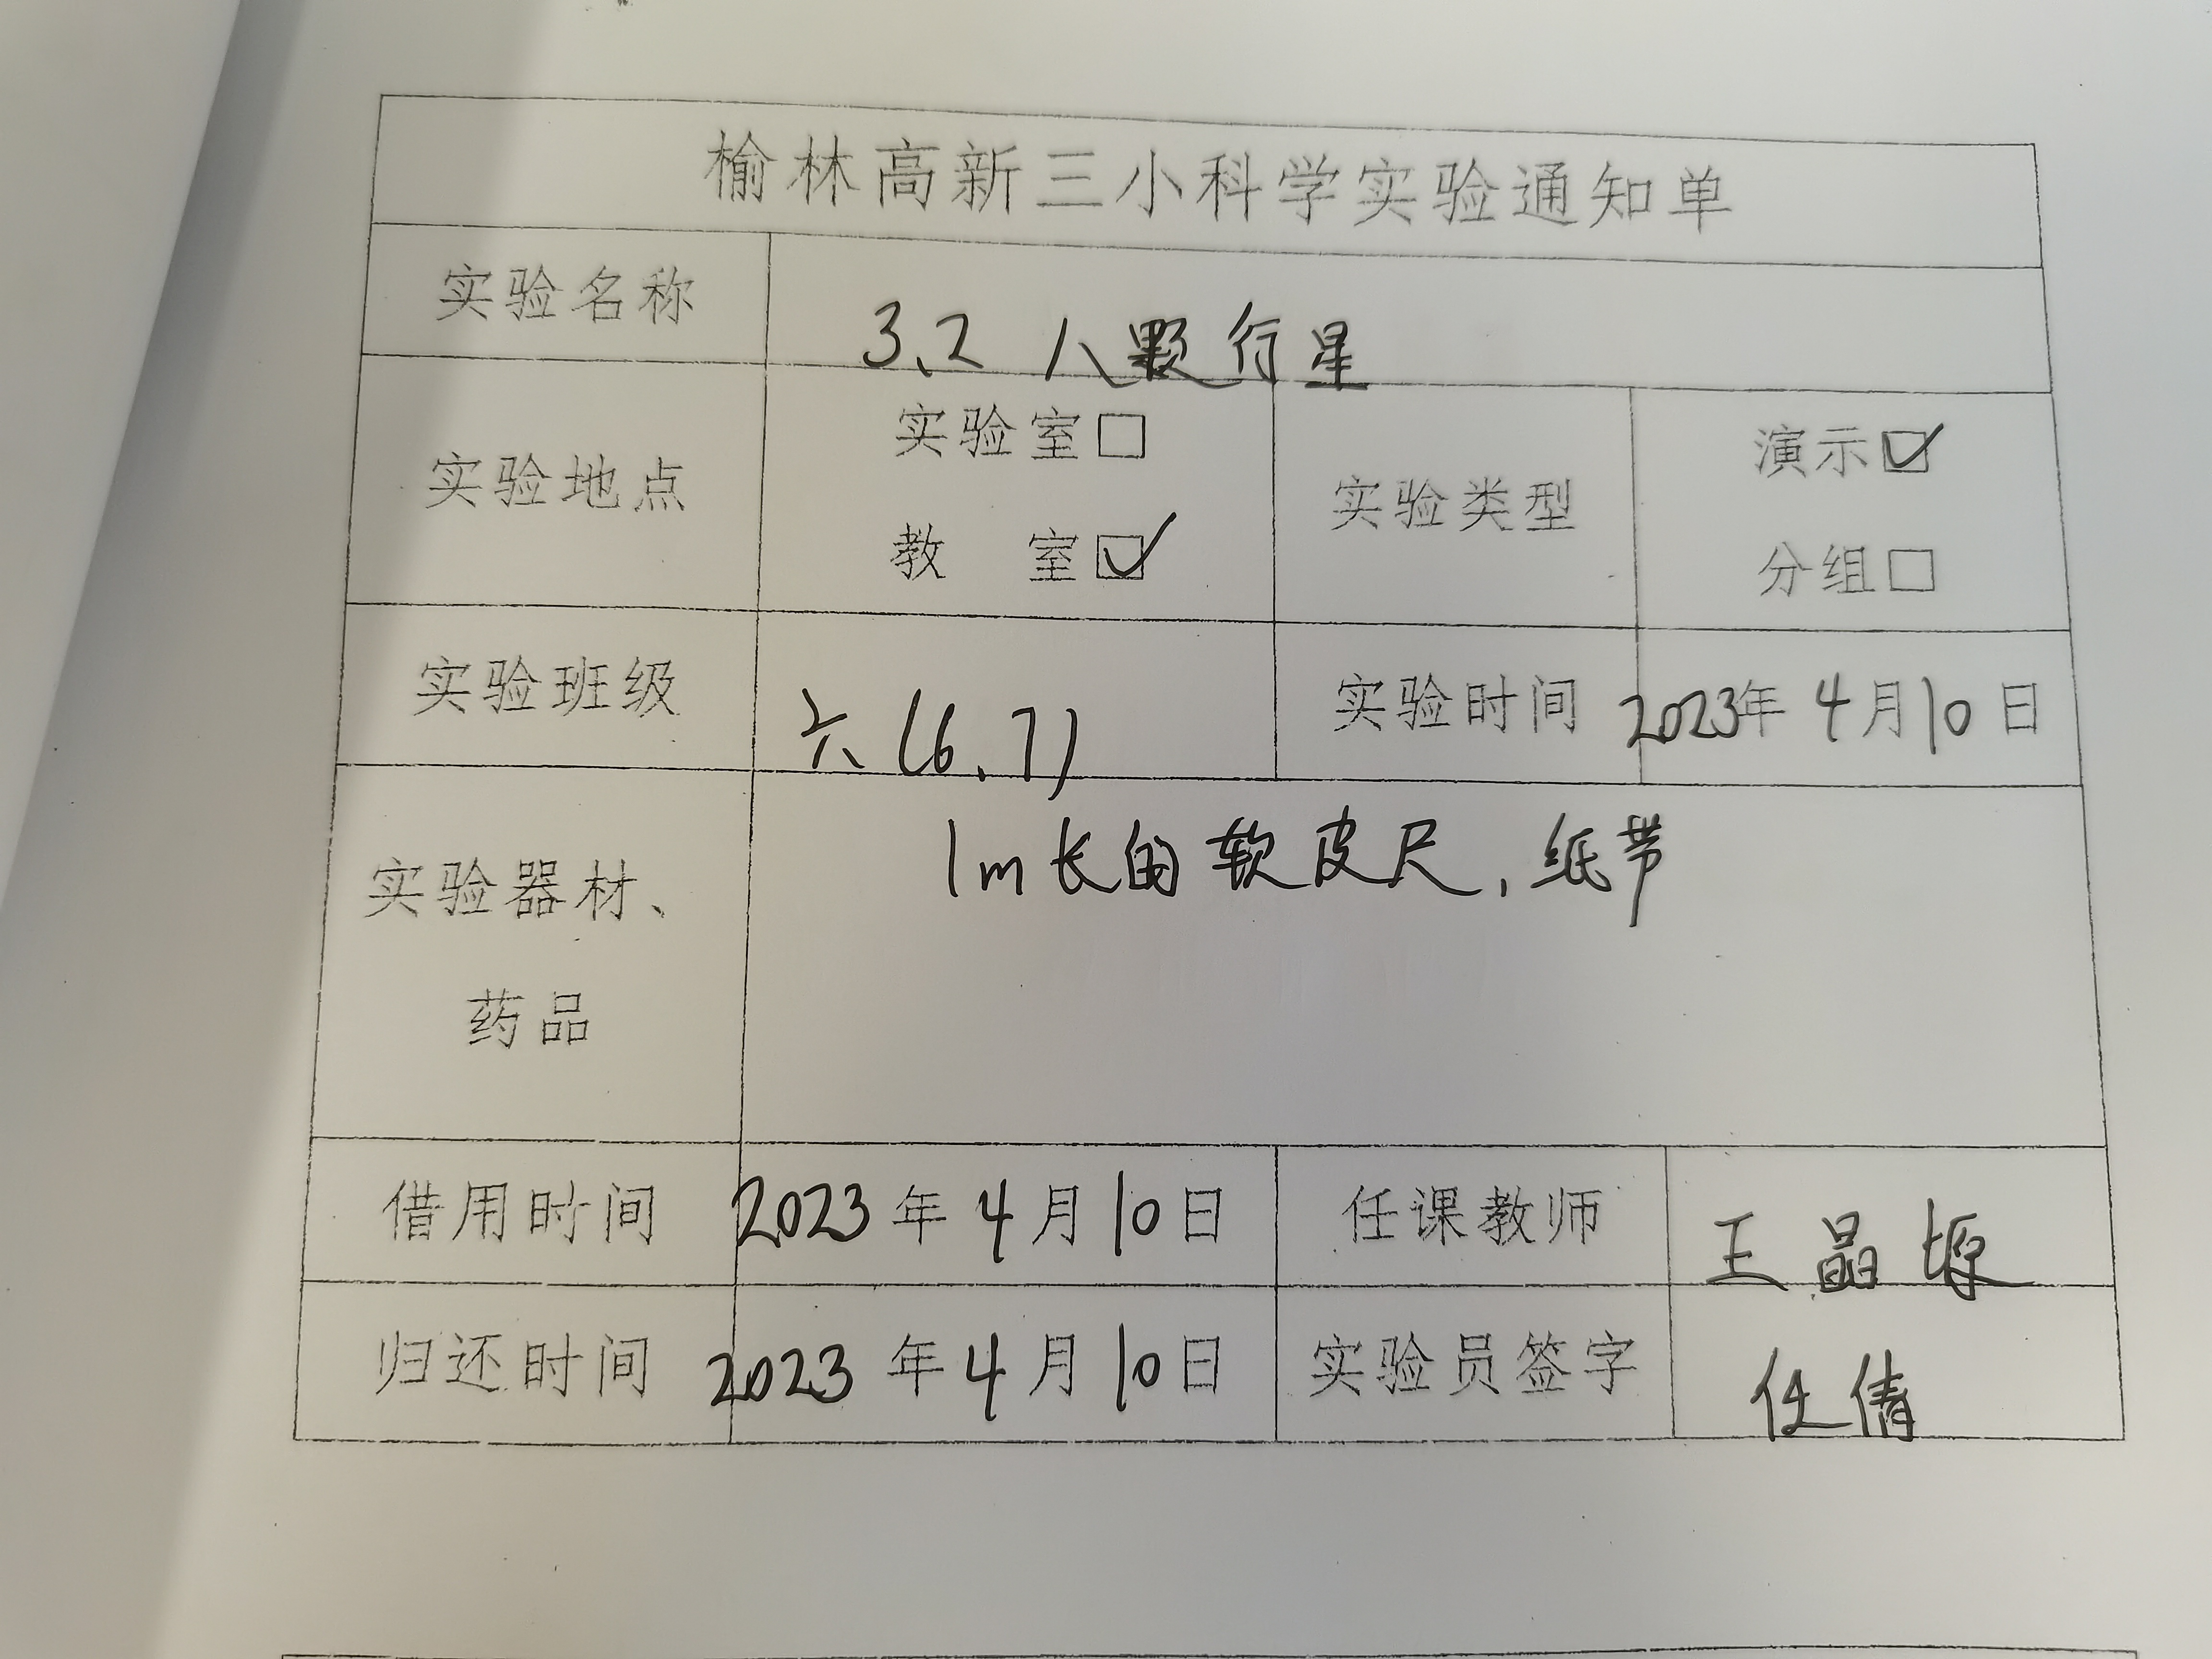 榆林高新三小科学实验通知单
实验名称 3.2 八颗行星
实验地点 实验室☐ 教 室☑ 实验类型 演示☑ 分组☐
实验班级 六(6、7) 实验时间 2023年4月10日
实验器材、药品 1m长的软皮尺,纸带
借用时间 2023年4月10日 任课教师 王晶塬
归还时间 2023年4月10日 实验员签字 任倩